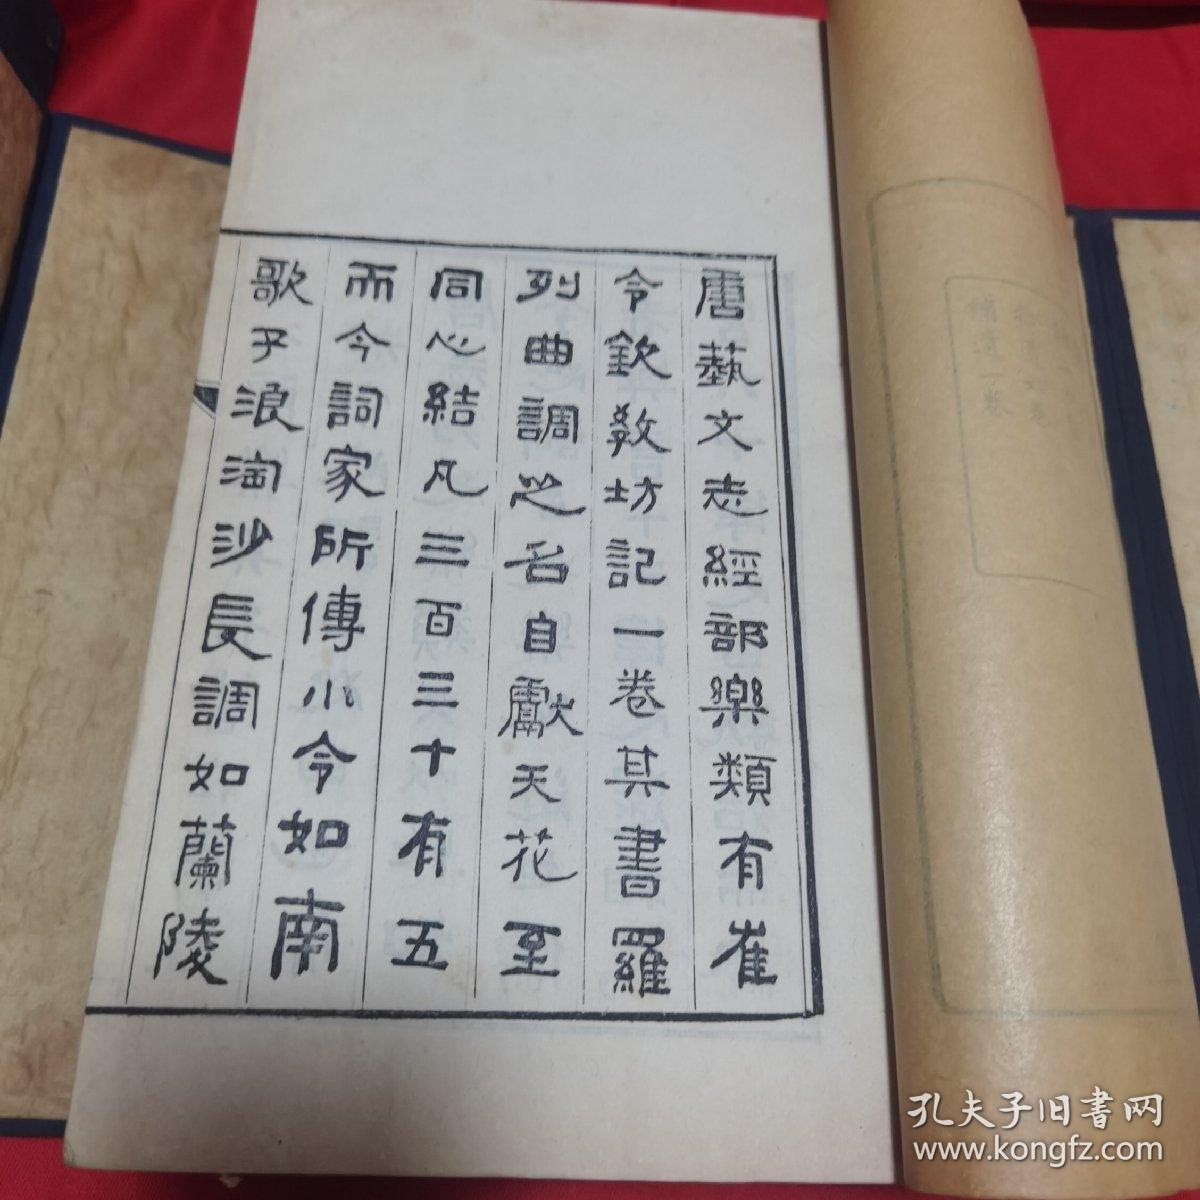 唐藝文志經部樂類有崔
令欽敎坊記一卷其書羅
列曲調之名自獻天花至
同心結凡三百三十有五
而今詞家所傳小令如南
歌子浪淘沙長調如蘭陵
孔夫子旧书网
www.kongfz.com